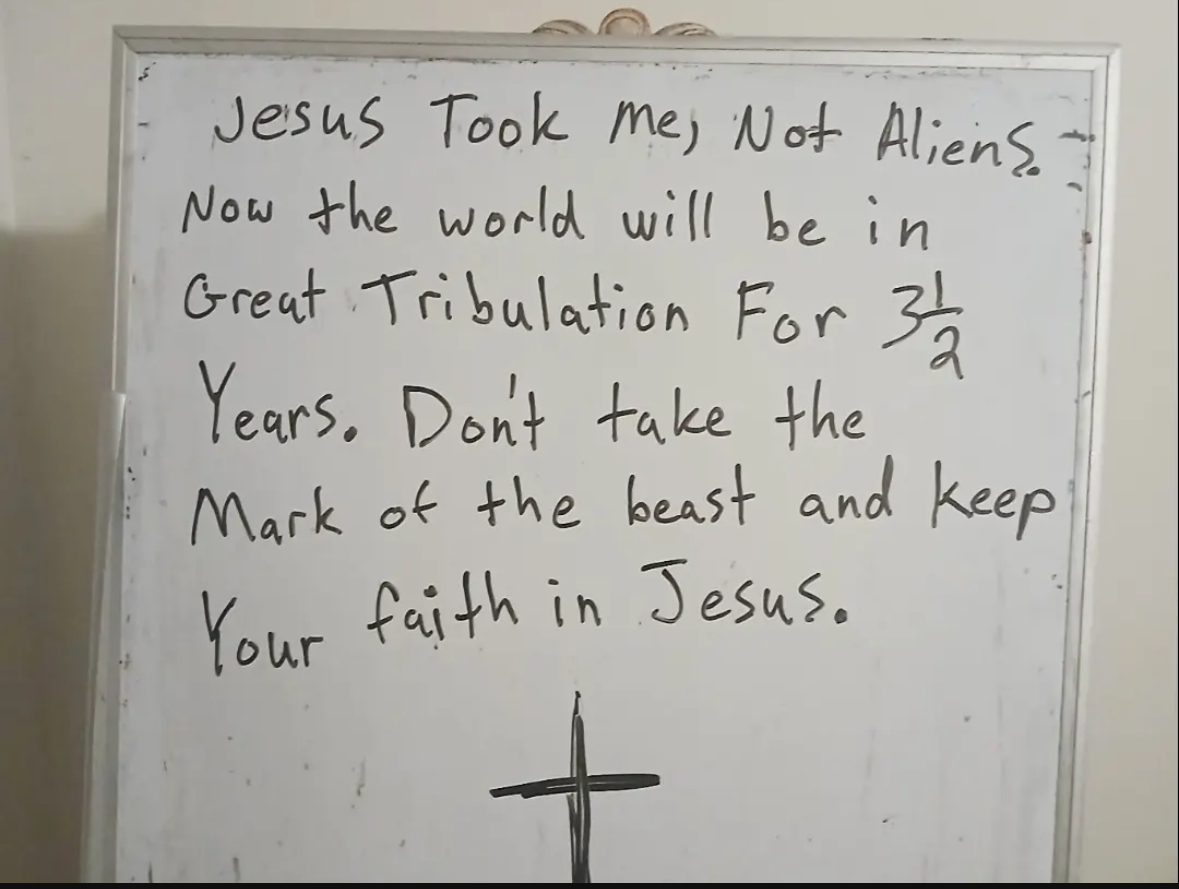 Jesus Took me, Not Aliens.
Now the world will be in
Great Tribulation For 3 1/2
Years. Don't take the
Mark of the beast and keep
Your faith in Jesus.